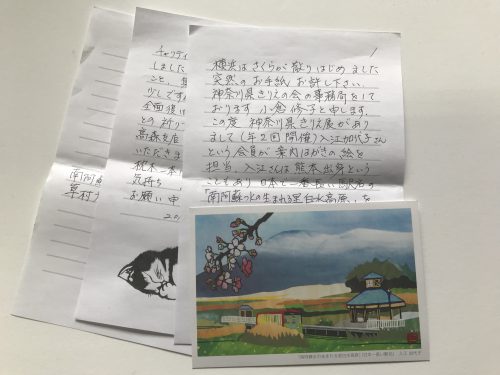 1
横浜はさくらが散りはじめました
突然のお手紙お許し下さい。
神奈川県きりえの会の事務局をして
おります 小倉修子と申します。
この度 神奈川県きりえ展があり
まして(年2回開催)入江加代子さん
という会員が案内はがきの絵を
担当、入江さんは熊本出身という
こともあり日本で一番長い駅名の
「南阿蘇水の生まれる里白水高原」を
チャリティ
しました
こと、
少しですが
全面復
との祈り
高森支店
いただきま
枕木一本
気持ち
お願い申
南阿
草村
「南阿蘇水の生まれる里白水高原」(日本一長い駅名) 入江加代子